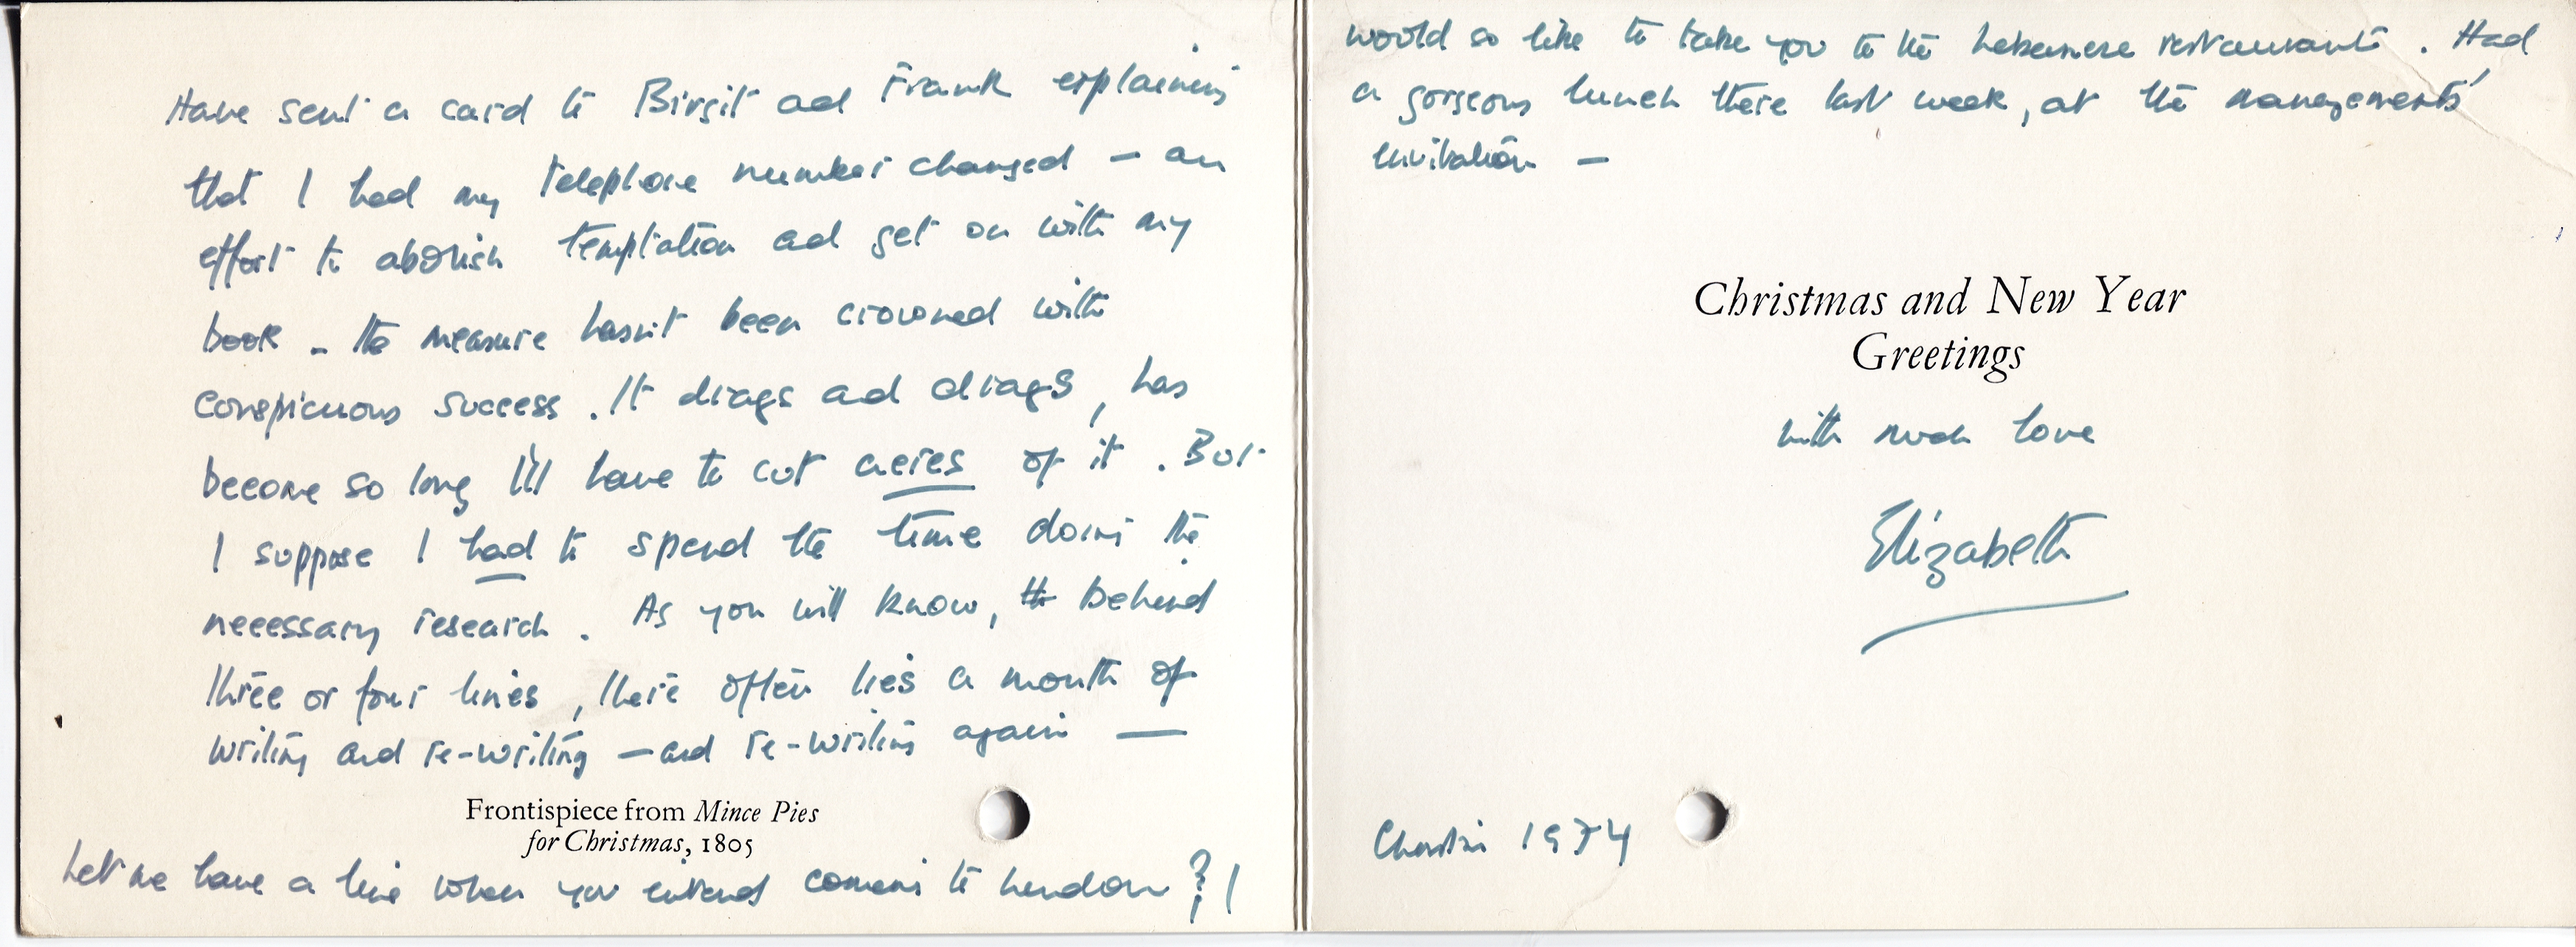 Have sent a card to Birgit and Frank explaining
that I had my telephone number changed – an
effort to abolish temptation and get on with my
book – the measure hasn't been crowned with
conspicuous success. It drags and drags, has
become so long I'll have to cut acres of it. But
I suppose I had to spend the time doing the
necessary research. As you will know, behind
three or four lines, there often lies a month of
writing and re-writing – and re-writing again —
Frontispiece from Mince Pies
for Christmas, 1805
Let me have a line when you intend coming to London? I
would so like to take you to the Lebanese restaurant. Had
a gorgeous lunch there last week, at the managements'
invitation –
Christmas and New Year
Greetings
with much love
Elizabeth
1974